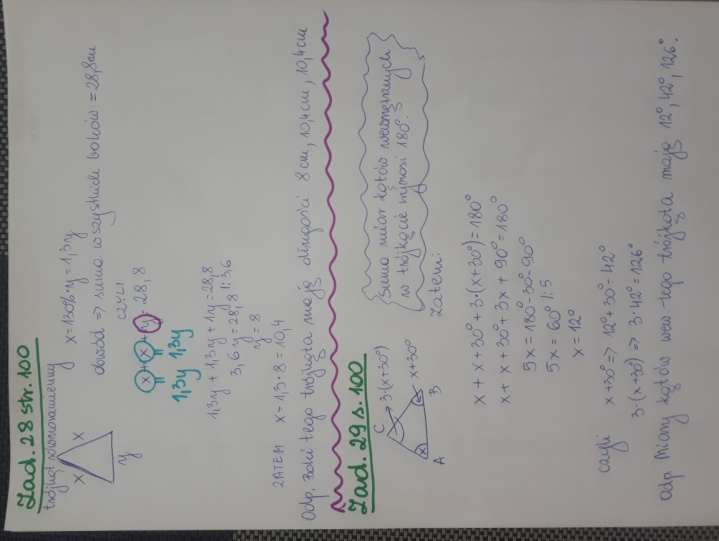 Zad. 28 str. 100
trójkąt równoramienny
x x
y
x = 130% · y = 1,3y
obwód => suma wszystkich boków = 28,8cm
czyli
x + x + y = 28,8
1,3y 1,3y
1,3y + 1,3y + 1y = 28,8
3,6y = 28,8 /:3,6
y = 8
ZATEM x = 1,3 · 8 = 10,4
Odp. Boki tego trójkąta mają długości 8cm, 10,4cm, 10,4cm
Zad. 29 s. 100
C 3·(x+30°)
x x+30°
A B
Suma miar kątów wewnętrznych
w trójkącie wynosi 180°.
zatem:
x + x + 30° + 3·(x+30°) = 180°
x + x + 30° + 3x + 90° = 180°
5x = 180° - 30° - 90°
5x = 60° /:5
x = 12°
czyli x+30° => 12° + 30° = 42°
3·(x+30) => 3·42° = 126°
odp Miary kątów wew. tego trójkąta mają 12°, 42°, 126°.